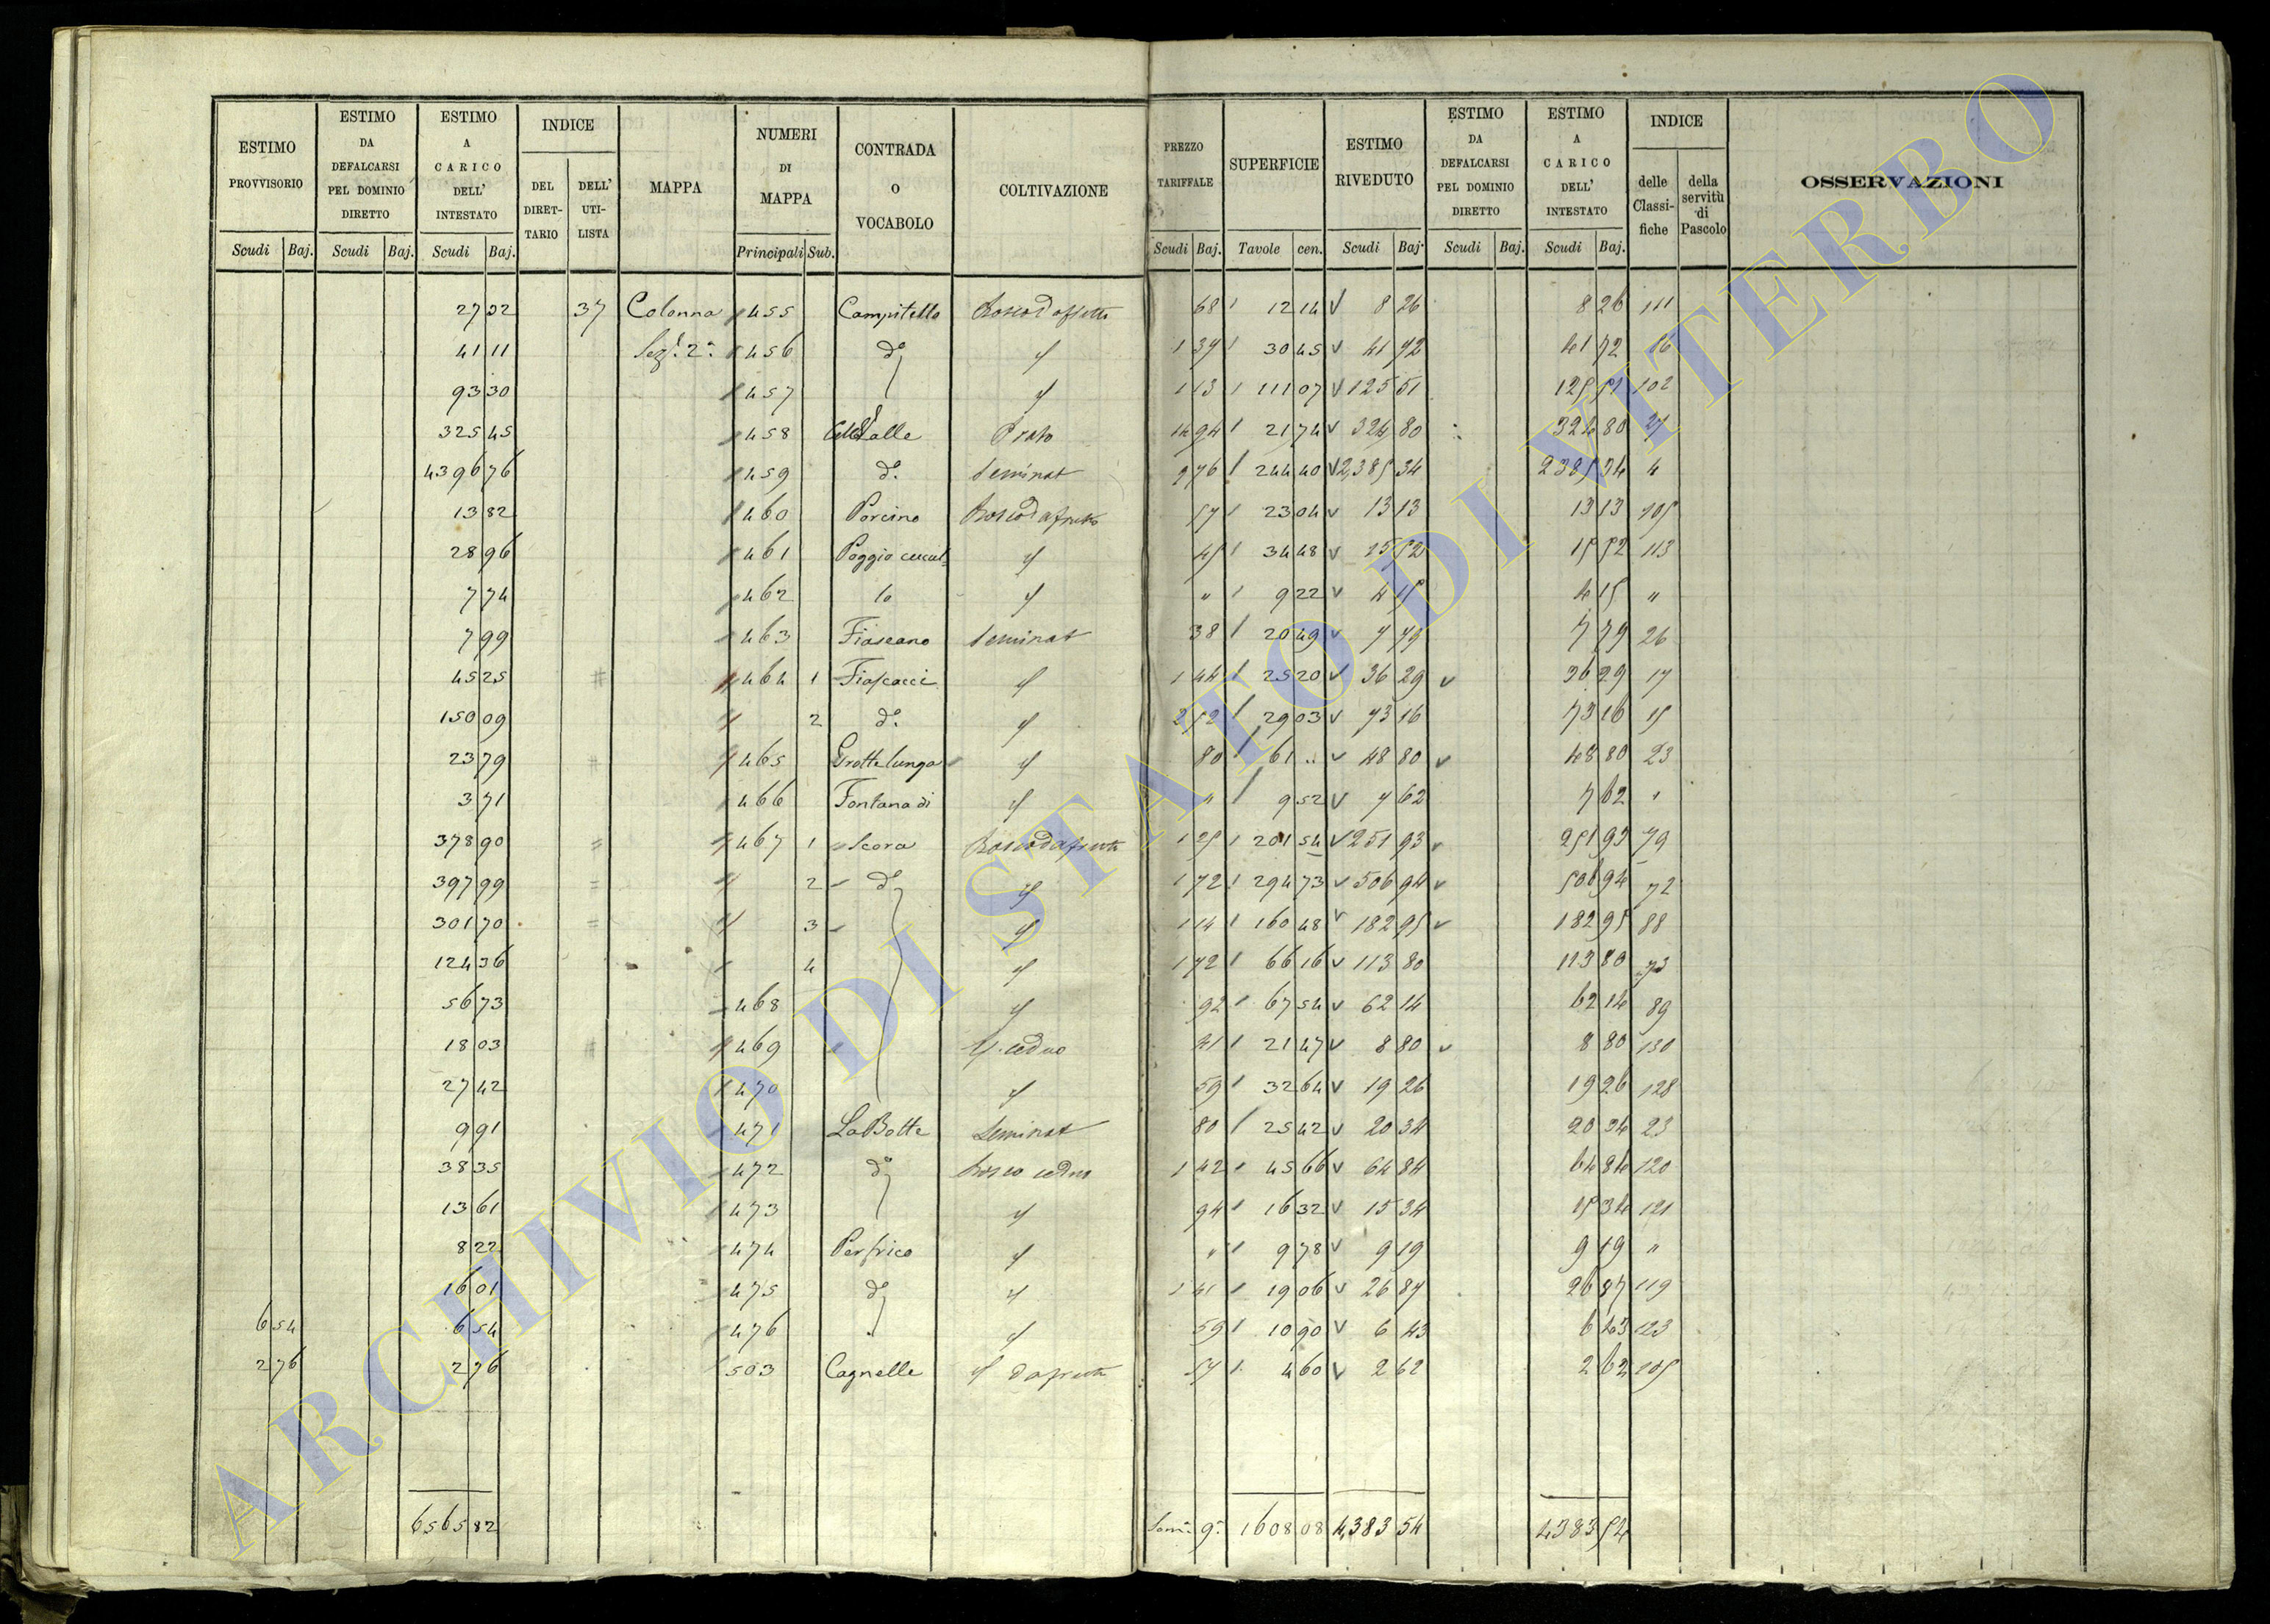 ESTIMO PROVVISORIO | ESTIMO DA DEFALCARSI PEL DOMINIO DIRETTO | ESTIMO A CARICO DELL' INTESTATO | INDICE | MAPPA | NUMERI DI MAPPA | CONTRADA O VOCABOLO | COLTIVAZIONE | PREZZO TARIFFALE | SUPERFICIE | ESTIMO RIVEDUTO | ESTIMO DA DEFALCARSI PEL DOMINIO DIRETTO | ESTIMO A CARICO DELL' INTESTATO | INDICE | OSSERVAZIONI
DEL DIRETTARIO | DELL' UTILISTA | delle Classifiche | della servitù di Pascolo
Scudi Baj. | Scudi Baj. | Scudi Baj. | Principali Sub. | Scudi Baj. | Tavole cen. | Scudi Baj. | Scudi Baj. | Scudi Baj.
27 02 | 37 | Colonna | 455 | Campitello | 68 | 12 14 | 8 26 | 8 26 | 111
41 11 | Sez. 2a | 456 | do | " | 1 37 | 30 45 | 41 72 | 41 72 | 16
93 30 | 457 | " | 1 13 | 111 07 | 125 51 | 125 51 | 102
325 45 | 458 | Valle | Prato | 14 94 | 21 74 | 324 80 | 324 80 | 27
4396 76 | 459 | do | Seminat | 9 76 | 244 40 | 2385 34 | 2385 34 | 4
13 82 | 460 | Porcino | Bosco da frutto | 57 | 23 04 | 13 13 | 13 13 | 105
28 96 | 461 | Poggio | " | 45 | 34 48 | 15 52 | 15 52 | 113
7 74 | 462 | lo | " | " | 9 22 | 4 15 | 4 15 | "
7 99 | 463 | Fiascano | Seminat | 38 | 20 49 | 7 79 | 7 79 | 26
45 25 | 464 | 1 | Fiascacci | " | 1 44 | 25 20 | 36 29 | 36 29 | 17
150 09 | 2 | do | " | 2 52 | 29 03 | 73 16 | 73 16 | 15
23 79 | 465 | Grottelunga | " | 80 | 61 " | 48 80 | 48 80 | 23
3 71 | 466 | Fontana di | " | " | 9 52 | 7 62 | 7 62 | "
378 90 | 467 | 1 | Scora | Bosco da frutto | 1 25 | 201 54 | 251 93 | 251 93 | 79
397 99 | 2 | do | " | 1 72 | 294 73 | 506 94 | 506 94 | 72
301 70 | 3 | " | 1 14 | 160 48 | 182 95 | 182 95 | 88
124 36 | 4 | " | 1 72 | 66 16 | 113 80 | 113 80 | 73
56 73 | 468 | " | 92 | 67 54 | 62 14 | 62 14 | 89
18 03 | 469 | " ceduo | 41 | 21 47 | 8 80 | 8 80 | 130
27 42 | 470 | " | 59 | 32 64 | 19 26 | 19 26 | 128
9 91 | 471 | La Botte | Seminat | 80 | 25 42 | 20 34 | 20 34 | 23
38 35 | 472 | do | Bosco ceduo | 1 42 | 45 66 | 64 84 | 64 84 | 120
13 61 | 473 | " | 94 | 16 32 | 15 34 | 15 34 | 121
8 22 | 474 | Perfrico | " | " | 9 78 | 9 19 | 9 19 | "
16 01 | 475 | do | " | 1 41 | 19 06 | 26 87 | 26 87 | 119
6 54 | 6 54 | 476 | " | 59 | 10 90 | 6 43 | 6 43 | 123
2 76 | 2 76 | 503 | Cagnelle | " da frutto | 57 | 4 60 | 2 62 | 2 62 | 105
6565 82 | 1608 08 | 4383 54 | 4383 54
ARCHIVIO DI STATO DI VITERBO